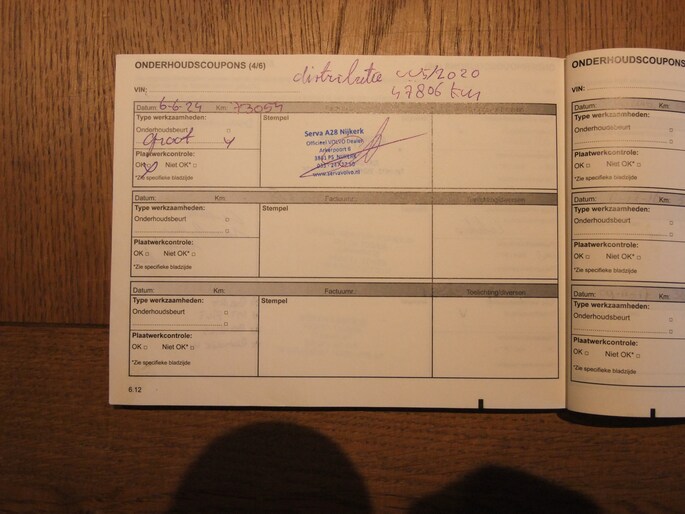 ONDERHOUDSCOUPONS (4/6)
distributie 11/5/2020
47806 km
VIN:
Datum: 6-6-24 Km: 73054
Type werkzaamheden: Stempel
Onderhoudsbeurt
groot
Plaatwerkcontrole:
OK Niet OK*
*Zie specifieke bladzijde
Serva A28 Nijkerk
Officieel VOLVO Dealer
Arkerpoort 8
3861 PS Nijkerk
www.servavolvo.nl
Datum: Km: Factuurnr.:
Type werkzaamheden: Stempel
Onderhoudsbeurt
Plaatwerkcontrole:
OK Niet OK*
*Zie specifieke bladzijde
Datum: Km: Factuurnr.: Toelichting/diversen
Type werkzaamheden: Stempel
Onderhoudsbeurt
Plaatwerkcontrole:
OK Niet OK*
*Zie specifieke bladzijde
6.12
ONDERHOUDSCOUPONS
VIN:
Datum:
Type werkzaamheden:
Onderhoudsbeurt
Plaatwerkcontrole:
OK Niet OK*
*Zie specifieke bladzijde
Datum:
Type werkzaamheden:
Onderhoudsbeurt
Plaatwerkcontrole:
OK Niet OK*
*Zie specifieke bladzijde
Datum:
Type werkzaamheden:
Onderhoudsbeurt
Plaatwerkcontrole:
OK Niet OK*
*Zie specifieke bladzijde